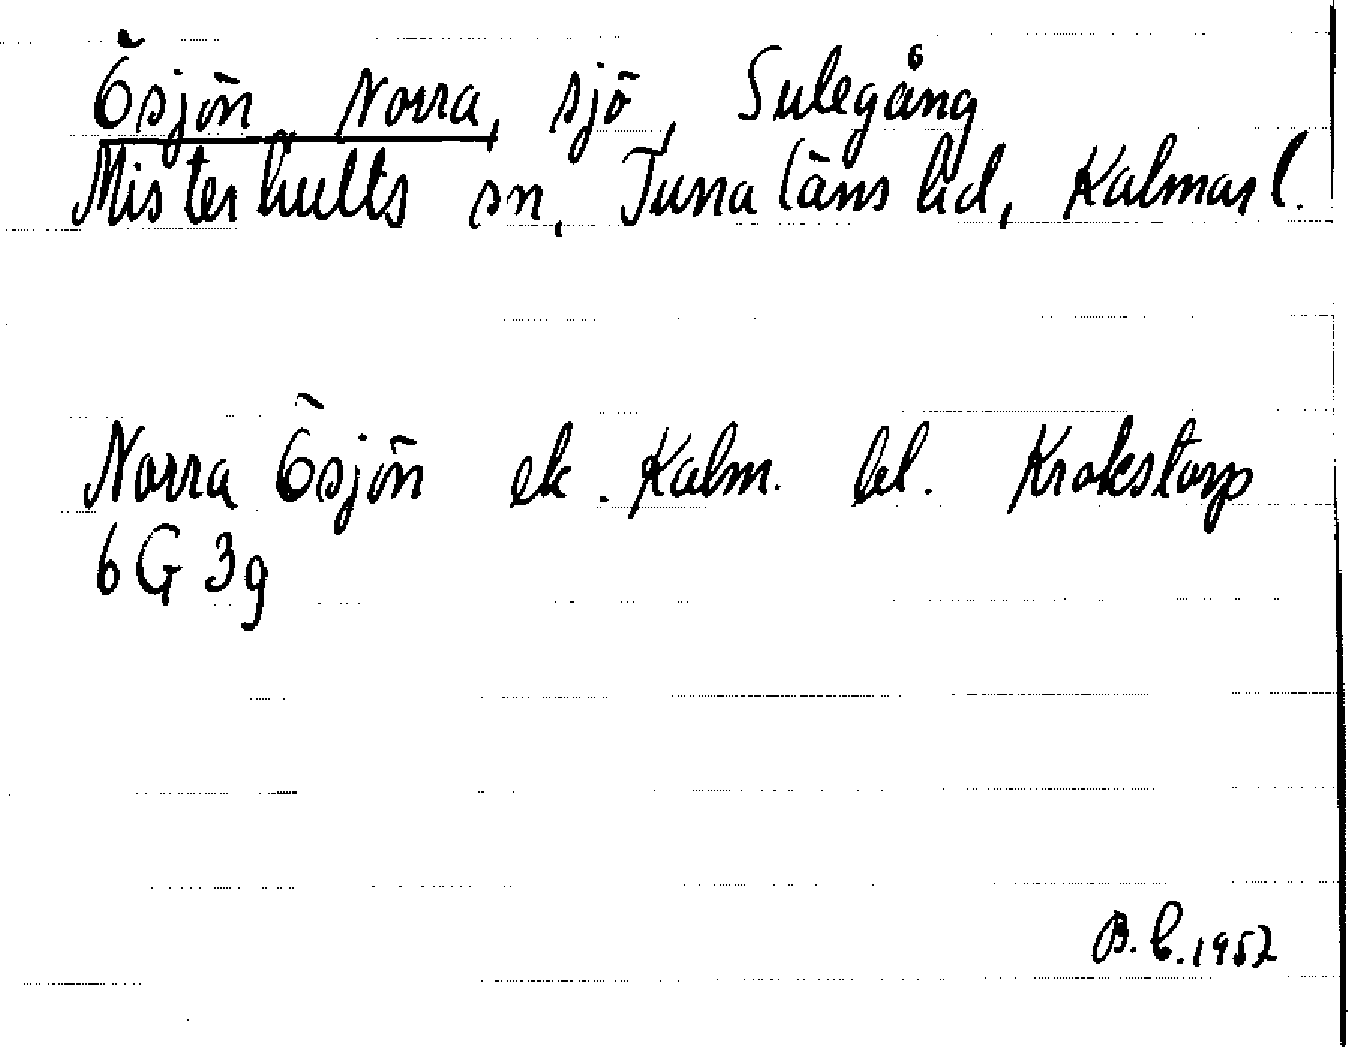 Ösjön Norra, sjö, Sulegång
Misterhults sn, Tunaläns hd, Kalmar l.
Norra Ösjön ek. Kalm. bl. Krokstorp
6 G 3g
B.E. 1952